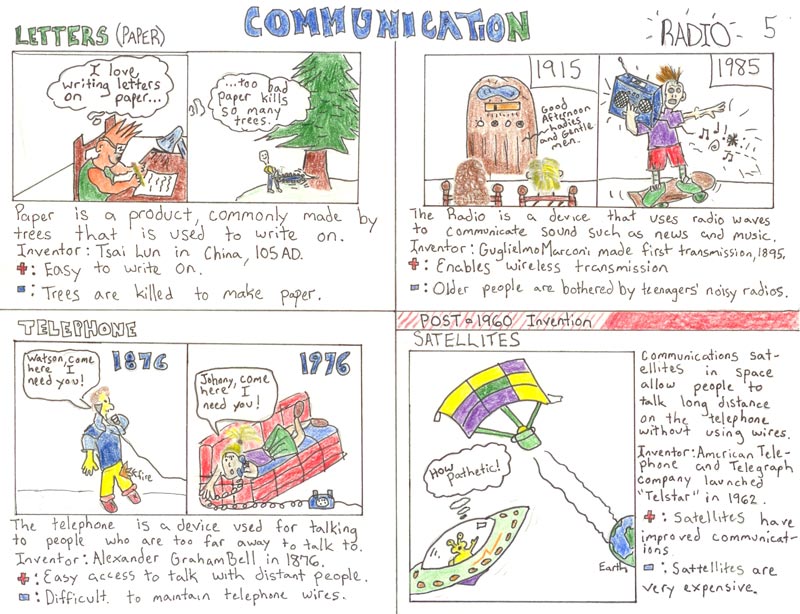 COMMUNICATION
LETTERS (PAPER)
I love
writing letters
on paper...
...too bad
paper kills
so many
trees.
Paper is a product, commonly made by
trees that is used to write on.
Inventor: Tsai Lun in China, 105 AD.
+: Easy to write on.
-: Trees are killed to make paper.
RADIO 5
1915
Good
Afternoon
Ladies
and Gentle
men.
1985
The Radio is a device that uses radio waves
to communicate sound such as news and music.
Inventor: Guglielmo Marconi made first transmission, 1895.
+: Enables wireless transmission
-: Older people are bothered by teenagers' noisy radios.
TELEPHONE
Watson, come
here I
need you!
1876
1976
Johnny, come
here I
need you!
The telephone is a device used for talking
to people who are too far away to talk to.
Inventor: Alexander Graham Bell in 1876.
+: Easy access to talk with distant people.
-: Difficult to maintain telephone wires.
POST-1960 Invention
SATELLITES
How
Pathetic!
Earth
Communications sat-
ellites in space
allow people to
talk long distance
on the telephone
without using wires.
Inventor: American Tele-
phone and Telegraph
company launched
"Telstar" in 1962.
+: Satellites have
improved communicat-
ions.
-: Sattellites are
very expensive.